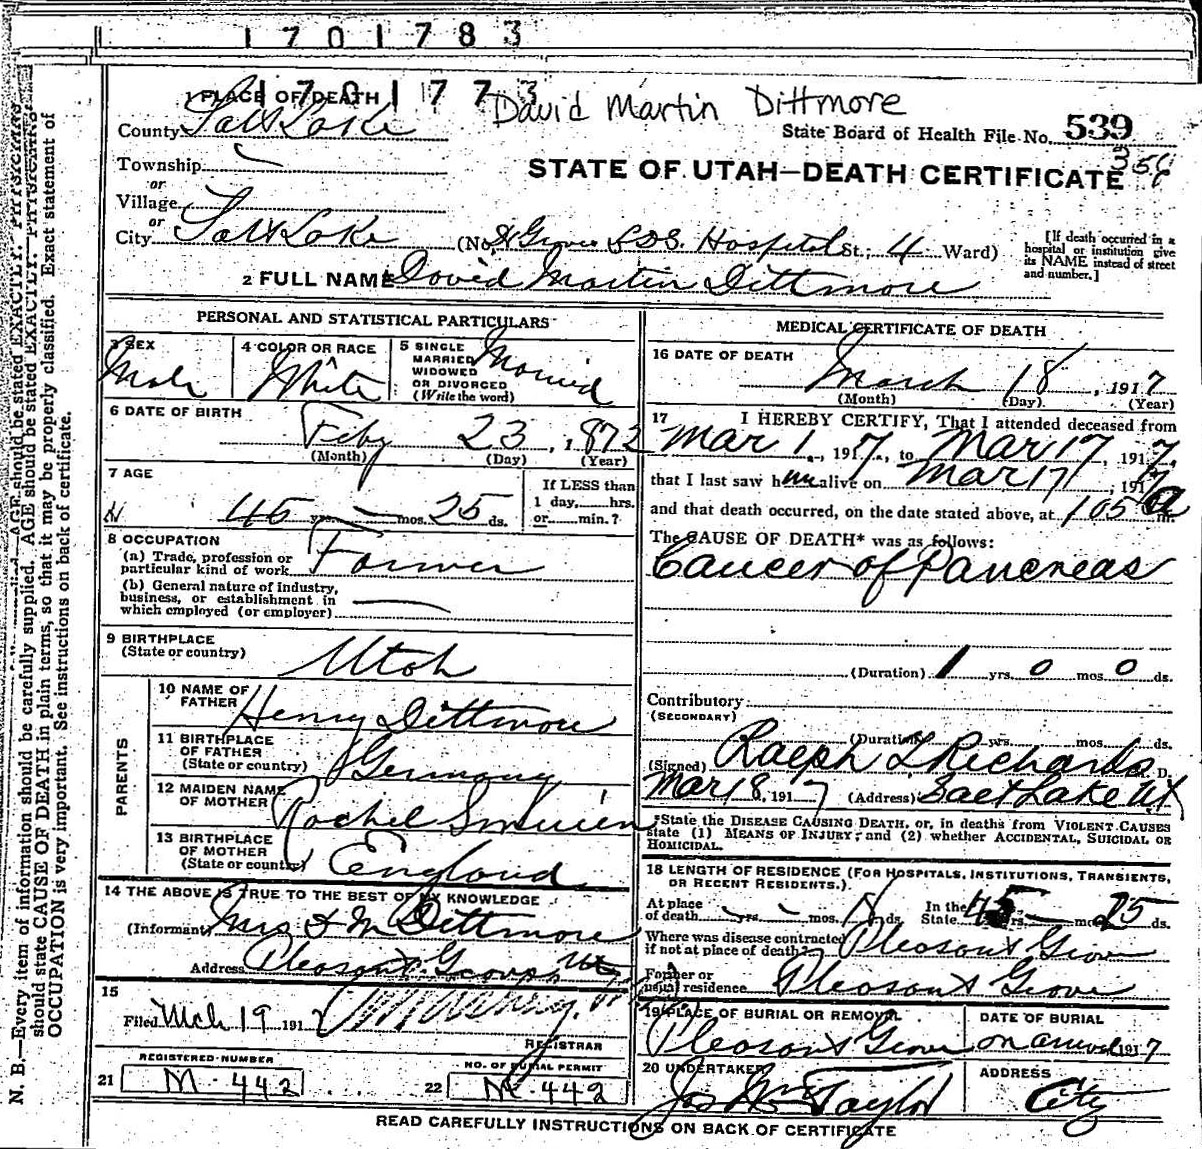 1 7 0 1 7 8 3
1 7 0 1 7 7 3
David Martin Dittmore
1 PLACE OF DEATH
County Salt Lake
State Board of Health File No. 539
356
Township
or
Village
STATE OF UTAH—DEATH CERTIFICATE
or
City Salt Lake (No. Groves L.D.S. Hospital St.; 4 Ward)
[If death occurred in a hospital or institution give its NAME instead of street and number.]
2 FULL NAME David Martin Dittmore
PERSONAL AND STATISTICAL PARTICULARS
3 SEX Male
4 COLOR OR RACE White
5 SINGLE MARRIED WIDOWED OR DIVORCED (Write the word) Married
6 DATE OF BIRTH
Feby 23, 1872
(Month) (Day) (Year)
7 AGE
45 yrs. — mos. 25 ds.
If LESS than 1 day,....hrs. or....min.?
8 OCCUPATION
(a) Trade, profession or particular kind of work Farmer
(b) General nature of industry, business, or establishment in which employed (or employer)
9 BIRTHPLACE (State or country) Utah
PARENTS
10 NAME OF FATHER Henry Dittmore
11 BIRTHPLACE OF FATHER (State or country) Germany
12 MAIDEN NAME OF MOTHER Rachel
13 BIRTHPLACE OF MOTHER (State or country) England
14 THE ABOVE IS TRUE TO THE BEST OF MY KNOWLEDGE
(Informant) Mrs D M Dittmore
Address Pleasant Grove Ut
15
Filed Mch 19 191
REGISTRAR
REGISTERED NUMBER
21 M-442
NO. OF BURIAL PERMIT
22 M-442
MEDICAL CERTIFICATE OF DEATH
16 DATE OF DEATH
March 18, 1917
(Month) (Day) (Year)
17 I HEREBY CERTIFY, That I attended deceased from
Mar 1, 1917, to Mar 17, 1917,
that I last saw him alive on Mar 17, 1917
and that death occurred, on the date stated above, at 105 a m.
The CAUSE OF DEATH* was as follows:
Cancer of Pancreas
(Duration) 1 yrs. 0 mos. 0 ds.
Contributory
(SECONDARY)
(Duration) yrs. mos. ds.
(Signed) Ralph T Richards M. D.
Mar 18, 1917 (Address) Salt Lake Ut
*State the DISEASE CAUSING DEATH, or, in deaths from VIOLENT CAUSES state (1) MEANS OF INJURY; and (2) whether ACCIDENTAL, SUICIDAL OR HOMICIDAL.
18 LENGTH OF RESIDENCE (FOR HOSPITALS, INSTITUTIONS, TRANSIENTS, OR RECENT RESIDENTS.)
At place of death — yrs. — mos. 18 ds. In the State 45 yrs. — mos. 25 ds.
Where was disease contracted if not at place of death? Pleasant Grove
Former or usual residence Pleasant Grove
19 PLACE OF BURIAL OR REMOVAL Pleasant Grove
DATE OF BURIAL on arrival 1917
20 UNDERTAKER Jos Wm Taylor
ADDRESS City
READ CAREFULLY INSTRUCTIONS ON BACK OF CERTIFICATE
N. B.—Every item of information should be carefully supplied. AGE should be stated EXACTLY. PHYSICIANS
should state CAUSE OF DEATH in plain terms, so that it may be properly classified. Exact statement of
OCCUPATION is very important. See instructions on back of certificate.